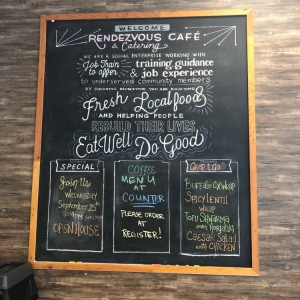 WELCOME
RENDEZVOUS CAFÉ
& Catering
WE ARE A SOCIAL ENTERPRISE WORKING WITH
Job Train
to offer
training guidance
& job experience
to underserved community members
BY CHOOSING RENDEZVOUS YOU ARE ENJOYING
Fresh Local foods
AND HELPING PEOPLE
REBUILD THEIR LIVES
Eat Well Do Good
SPECIAL
Join Us
Wednesday
September 25th
OPEN HOUSE
COFFEE
MENU
AT
COUNTER
PLEASE ORDER
AT
REGISTER!
Grab & Go
Buffalo CX wrap
Spicy Lentil
wrap
Tofu Shwarma
Caesar Salad
with CHICKEN